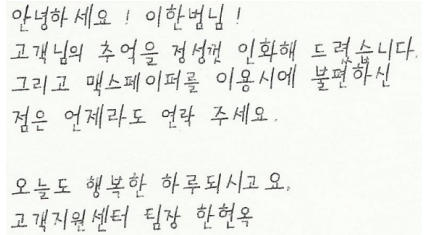 안녕하세요! 이한범님!
고객님의 추억을 정성껏 인화해 드렸습니다.
그리고 맥스페이퍼를 이용시에 불편하신
점은 언제라도 연락 주세요.
오늘도 행복한 하루되시고요.
고객지원센터 팀장 한헌옥